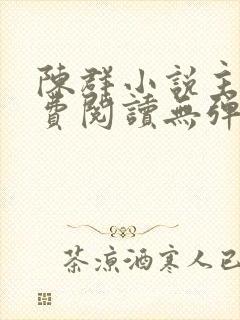 陳群小說主
費閱讀無彈
茶涼酒寒人已